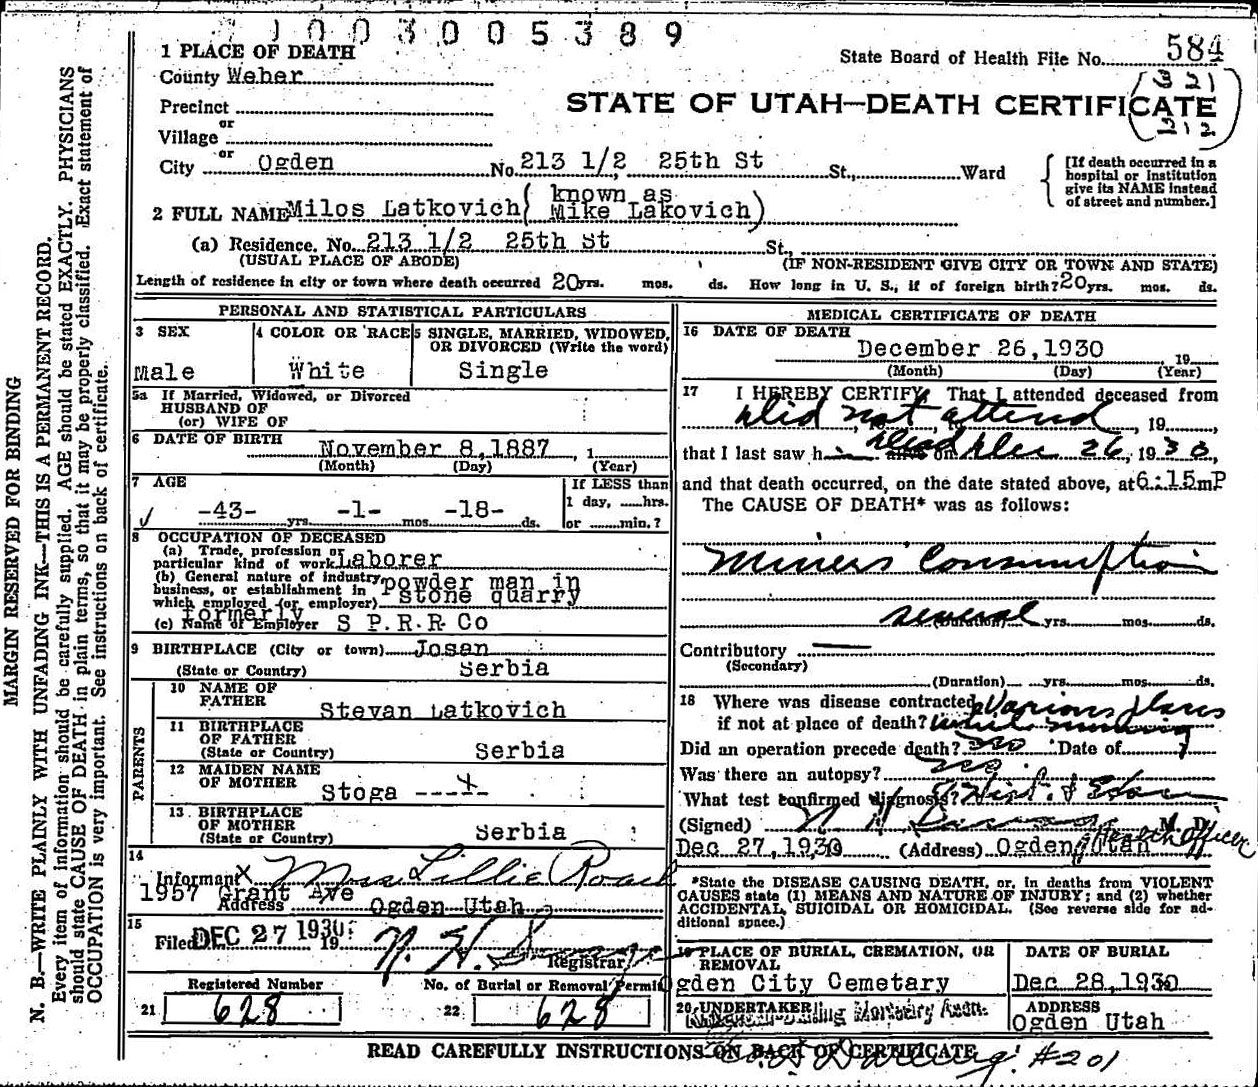 1003005389
State Board of Health File No. 584
(321
212)
STATE OF UTAH—DEATH CERTIFICATE
1 PLACE OF DEATH
County Weber
Precinct
or
Village
or
City Ogden No. 213 1/2 25th St St., Ward
[If death occurred in a hospital or institution give its NAME instead of street and number.]
2 FULL NAME Milos Latkovich ( known as Mike Lakovich)
(a) Residence. No. 213 1/2 25th St St.,
(USUAL PLACE OF ABODE) (IF NON-RESIDENT GIVE CITY OR TOWN AND STATE)
Length of residence in city or town where death occurred 20 yrs. mos. ds. How long in U. S., if of foreign birth? 20 yrs. mos. ds.
PERSONAL AND STATISTICAL PARTICULARS
3 SEX
Male
4 COLOR OR RACE
White
5 SINGLE, MARRIED, WIDOWED, OR DIVORCED (Write the word)
Single
5a If Married, Widowed, or Divorced
HUSBAND OF
(or) WIFE OF
6 DATE OF BIRTH
November 8,1887 , 1
(Month) (Day) (Year)
7 AGE
-43- yrs. -1- mos. -18- ds.
If LESS than
1 day, hrs.
or min.?
8 OCCUPATION OF DECEASED
(a) Trade, profession or
particular kind of work Laborer
(b) General nature of industry,
business, or establishment in
which employed (or employer) powder man in stone quarry
formerly
(c) Name of Employer S P.R.R Co
9 BIRTHPLACE (City or town) Josan
(State or Country) Serbia
PARENTS
10 NAME OF
FATHER Stevan Latkovich
11 BIRTHPLACE
OF FATHER
(State or Country) Serbia
12 MAIDEN NAME
OF MOTHER Stoga -----
13 BIRTHPLACE
OF MOTHER
(State or Country) Serbia
14
Informant X Mrs Lillie Roach
1957 Grant Ave
Address Ogden Utah
15
Filed DEC 27 1930 19
N. H. Registrar
Registered Number
21 628
No. of Burial or Removal Permit
22 628
MEDICAL CERTIFICATE OF DEATH
16 DATE OF DEATH
December 26,1930 19
(Month) (Day) (Year)
17 I HEREBY CERTIFY, That I attended deceased from
Did not attend , 19 ,
that I last saw h im alive on Dead Dec 26, 1930,
and that death occurred, on the date stated above, at 6:15m P
The CAUSE OF DEATH* was as follows:
Miners' Consumption
several (Duration) yrs. mos. ds.
Contributory —
(Secondary)
(Duration) yrs. mos. ds.
18 Where was disease contracted Various places
if not at place of death? while mining
Did an operation precede death? no Date of
Was there an autopsy? no
What test confirmed diagnosis? Hist. & Exam
(Signed) N H M. D.
Health Officer
Dec 27,1930 19 (Address) Ogden Utah
*State the DISEASE CAUSING DEATH, or, in deaths from VIOLENT
CAUSES state (1) MEANS AND NATURE OF INJURY; and (2) whether
ACCIDENTAL, SUICIDAL OR HOMICIDAL. (See reverse side for ad-
ditional space.)
19 PLACE OF BURIAL, CREMATION, OR
REMOVAL
Ogden City Cemetary
DATE OF BURIAL
Dec 28,1930
20 UNDERTAKER
Mortuary Assn.
ADDRESS
Ogden Utah
READ CAREFULLY INSTRUCTIONS ON BACK OF CERTIFICATE
#201
MARGIN RESERVED FOR BINDING
N. B.—WRITE PLAINLY WITH UNFADING INK—THIS IS A PERMANENT RECORD.
Every item of information should be carefully supplied. AGE should be stated EXACTLY. PHYSICIANS
should state CAUSE OF DEATH in plain terms, so that it may be properly classified. Exact statement of
OCCUPATION is very important. See instructions on back of certificate.